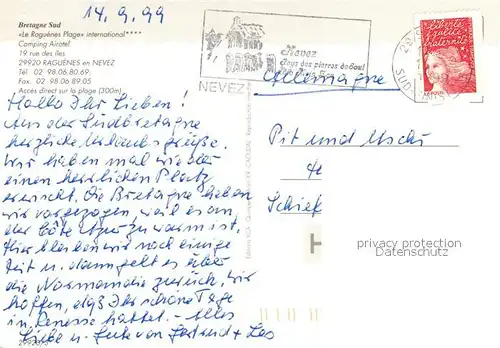 14.9.99
Bretagne Sud
«Le Raguénès Plage» international****
Camping Airotel
19 rue des îles
29920 RAGUÉNÈS en NEVEZ
Tél 02 98.06.80.69
Fax. 02 98.06 89.05
Accès direct sur la plage (300m)
Hallo Ihr Lieben!
Aus der Südbretagne
herzliche Urlaubsgrüße.
Wir haben mal wieder
einen herrlichen Platz
erwischt. Die Bretagne haben
wir vorgezogen, weil es an
der Côte d'Azur zu warm ist.
Hier bleiben wir noch einige
Zeit u. dann geht es über
die Normandie zurück, wir
hoffen, daß Ihr schöne Tage
in Renesse hattet. – Alles
Liebe u. Gute von Gertrud + Leo
Nevez
Pays des pierres debout
NEVEZ
Liberté
égalité
fraternité
LA POSTE
Allemagne
Pit und Uschi
Schief
privacy protection
Datenschutz